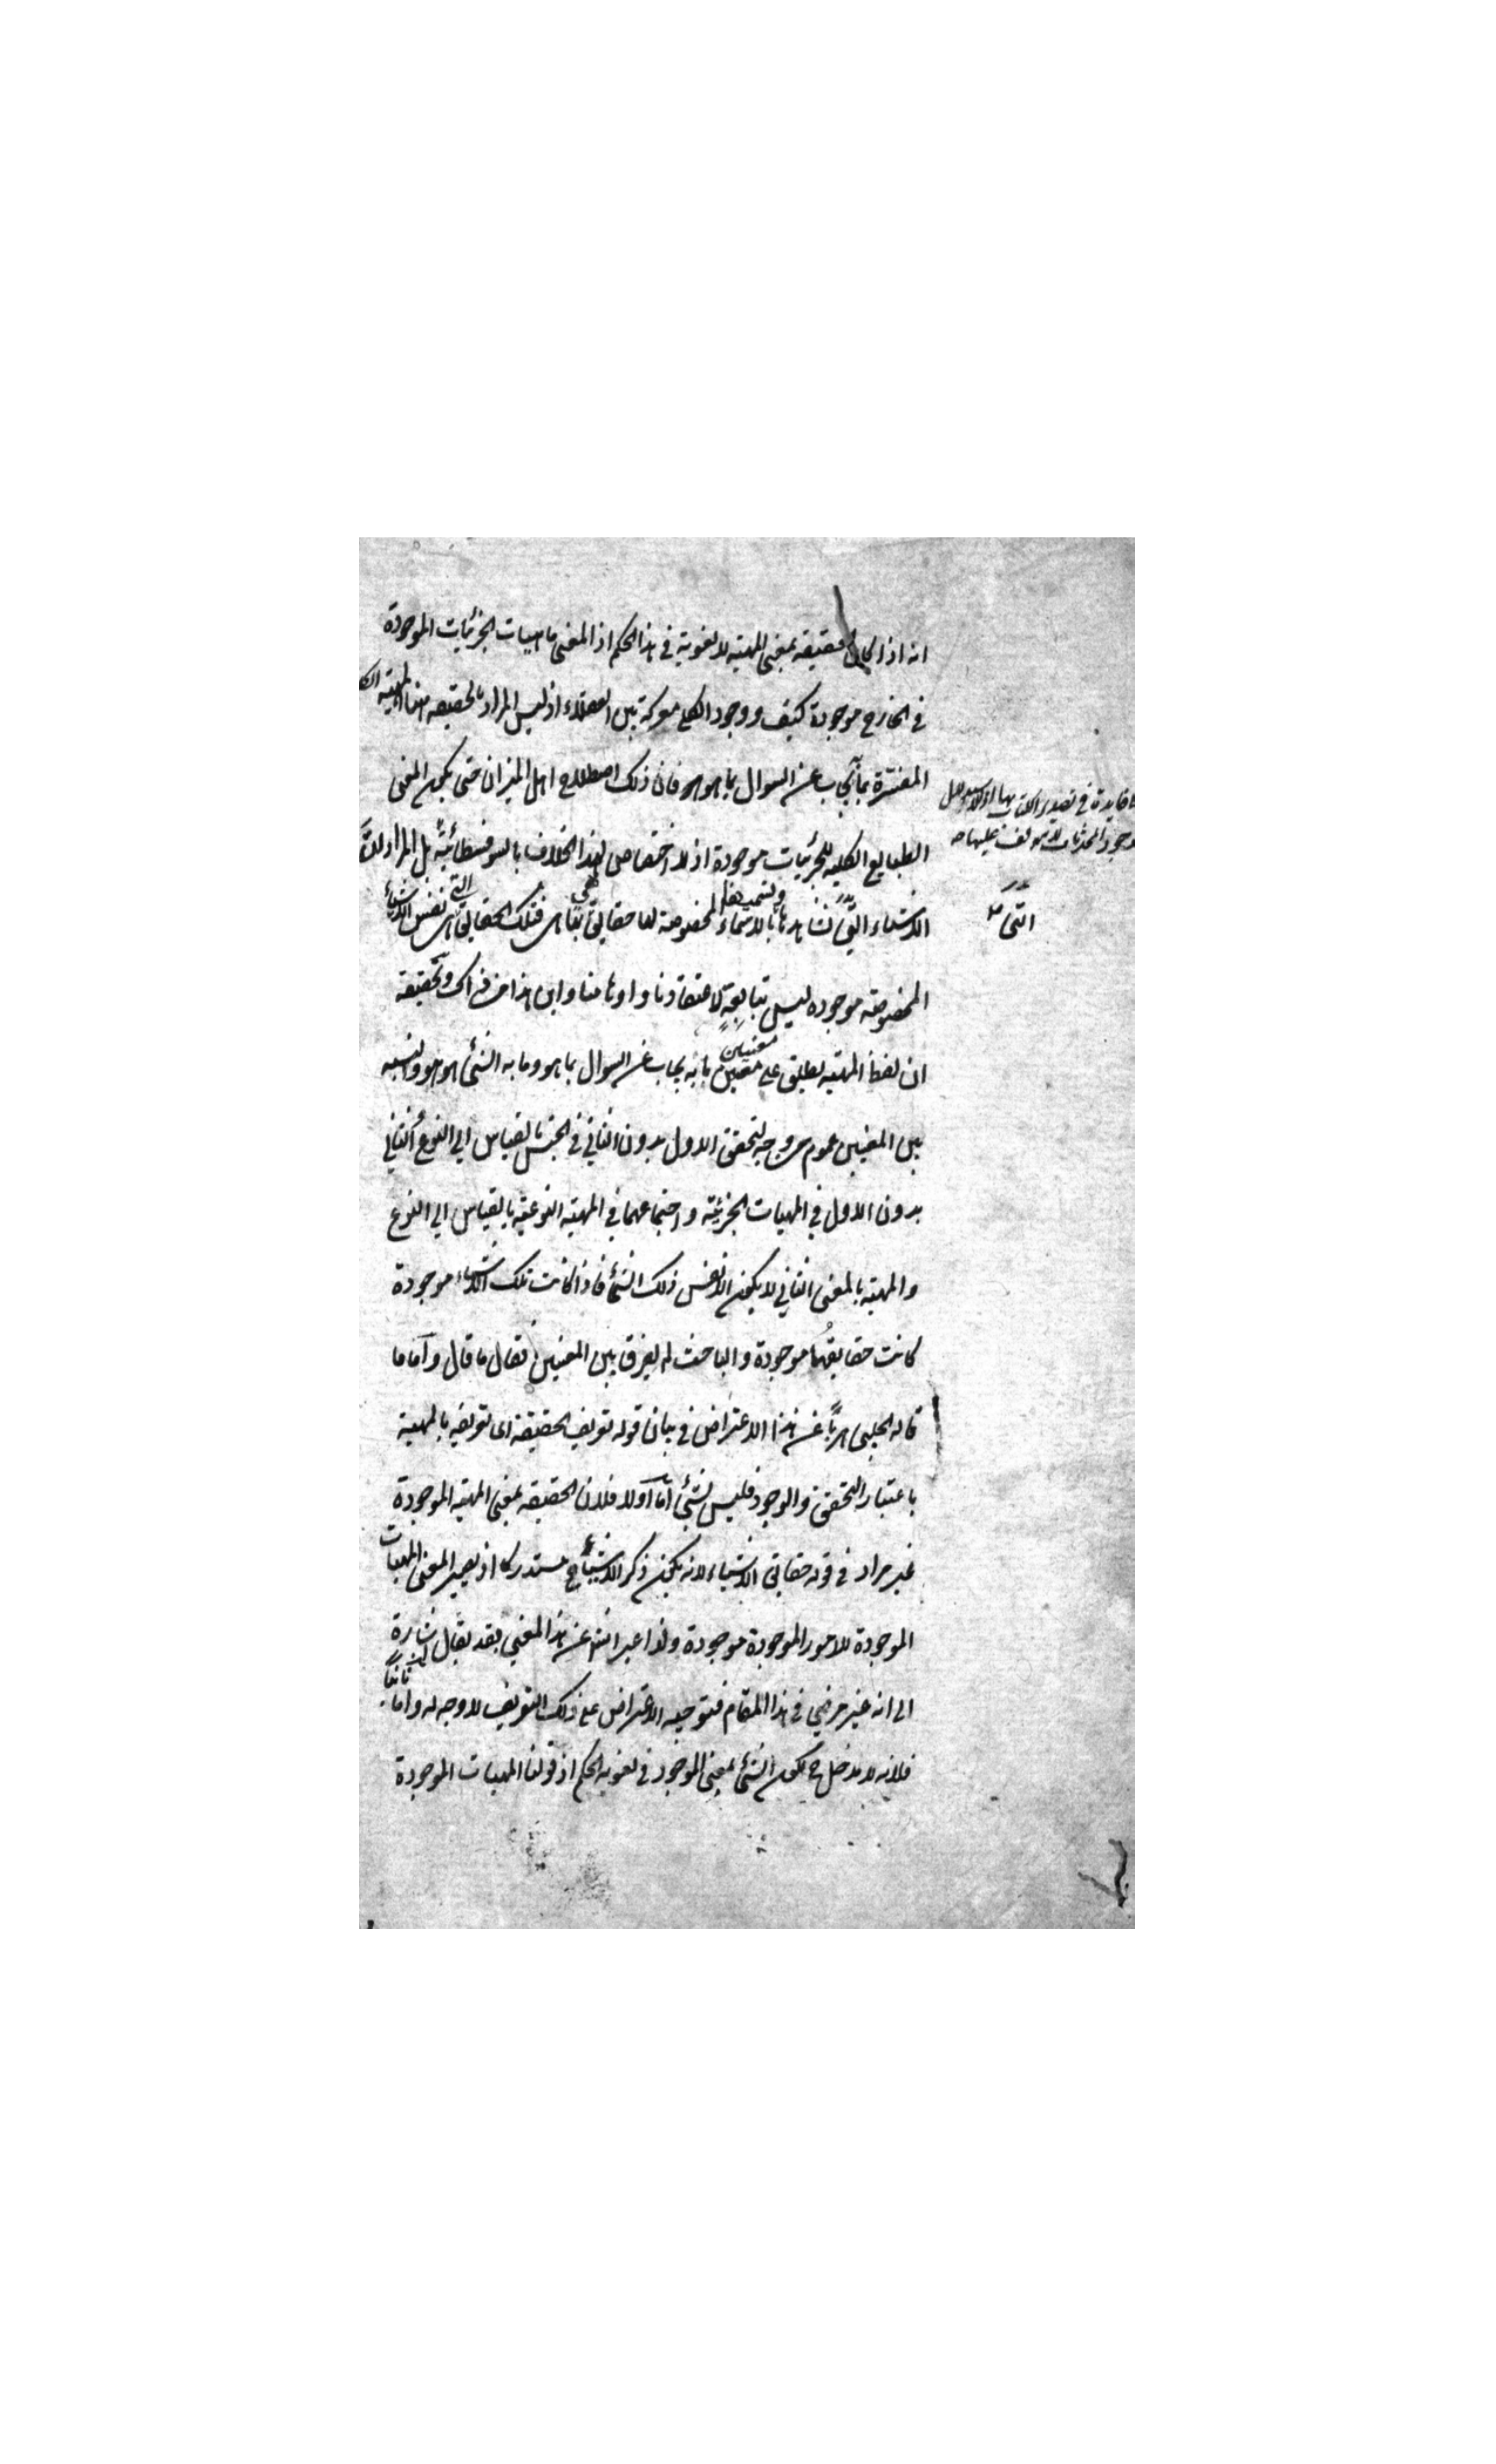 انه اذا كان حقيقه بمعنى المهية لا لغوية في هذا الحكم اذ المعنى ماهيات الجزئيات الموجودة
في الخارج موجودة كيف ووجود الكلي معركة بين العقلاء اذ ليس المراد بالحقيقه هنا المهية
المفسّرة بما يُجاب عن السوال بما هو هو فان ذلك اصطلاح اهل الميزان حتى يكون المعنى
الطبايع الكليه للجزئيات موجودة اذ لا اختصاص لهذا الخلاف بالسوفسطائية بل المراد ان
الاشياء التي نشاهدها ونسميها بالاسماء المخصوصة لها حقايق هي بها هي فتلك الحقايق التي هي نفس الاشياء
المخصوصة موجوده ليس بتابعة لاعتقادنا واوهامنا واين هذا من ذاك وتحقيقه
ان لفظ المهية يطلق على معنيين ما به يجاب عن السوال بما هو وما به الشئ هو هو والنسبه
بين المعنيين عموم من وجه لتحقق الاول بدون الثاني في الجنس بالقياس الى النوع والثاني
بدون الاول في المهيات الجزئية واجتماعهما في المهية النوعية بالقياس الى النوع
والمهية بالمعنى الثاني لا يكون الا نفس ذلك الشئ فاذا كانت تلك الاشياء موجودة
كانت حقايقها موجودة والباحث لم يفرق بين المعنيين فقال ما قال وأما ما
قاله الجلبى هربًا عن هذا الاعتراض في بيان قوله تعريف الحقيقة اى تعريفه بالمهية
باعتبار التحقق والوجود فليس بشئ أما أولا فلان الحقيقه بمعنى المهية الموجودة
غير مراد في قوله حقايق الاشياء لانه يكون ذكر الاشياء ح مستدركا اذ يصير المعنى المهيات
الموجودة للامور الموجودة موجودة ولذا عبر الش عن هذا المعنى بقد يقال اشارة
الى انه غير مرضي في هذا المقام فتوجيه الاعتراض على ذلك التعريف لا وجه له واما ثانيا
فلانه لا مدخل ح لكون الشئ بمعنى الموجود في لغوية الحكم اذ قولنا المهيات الموجودة
فايدة في تصدير الكتاب بها
وجود المحدثات
انتهى